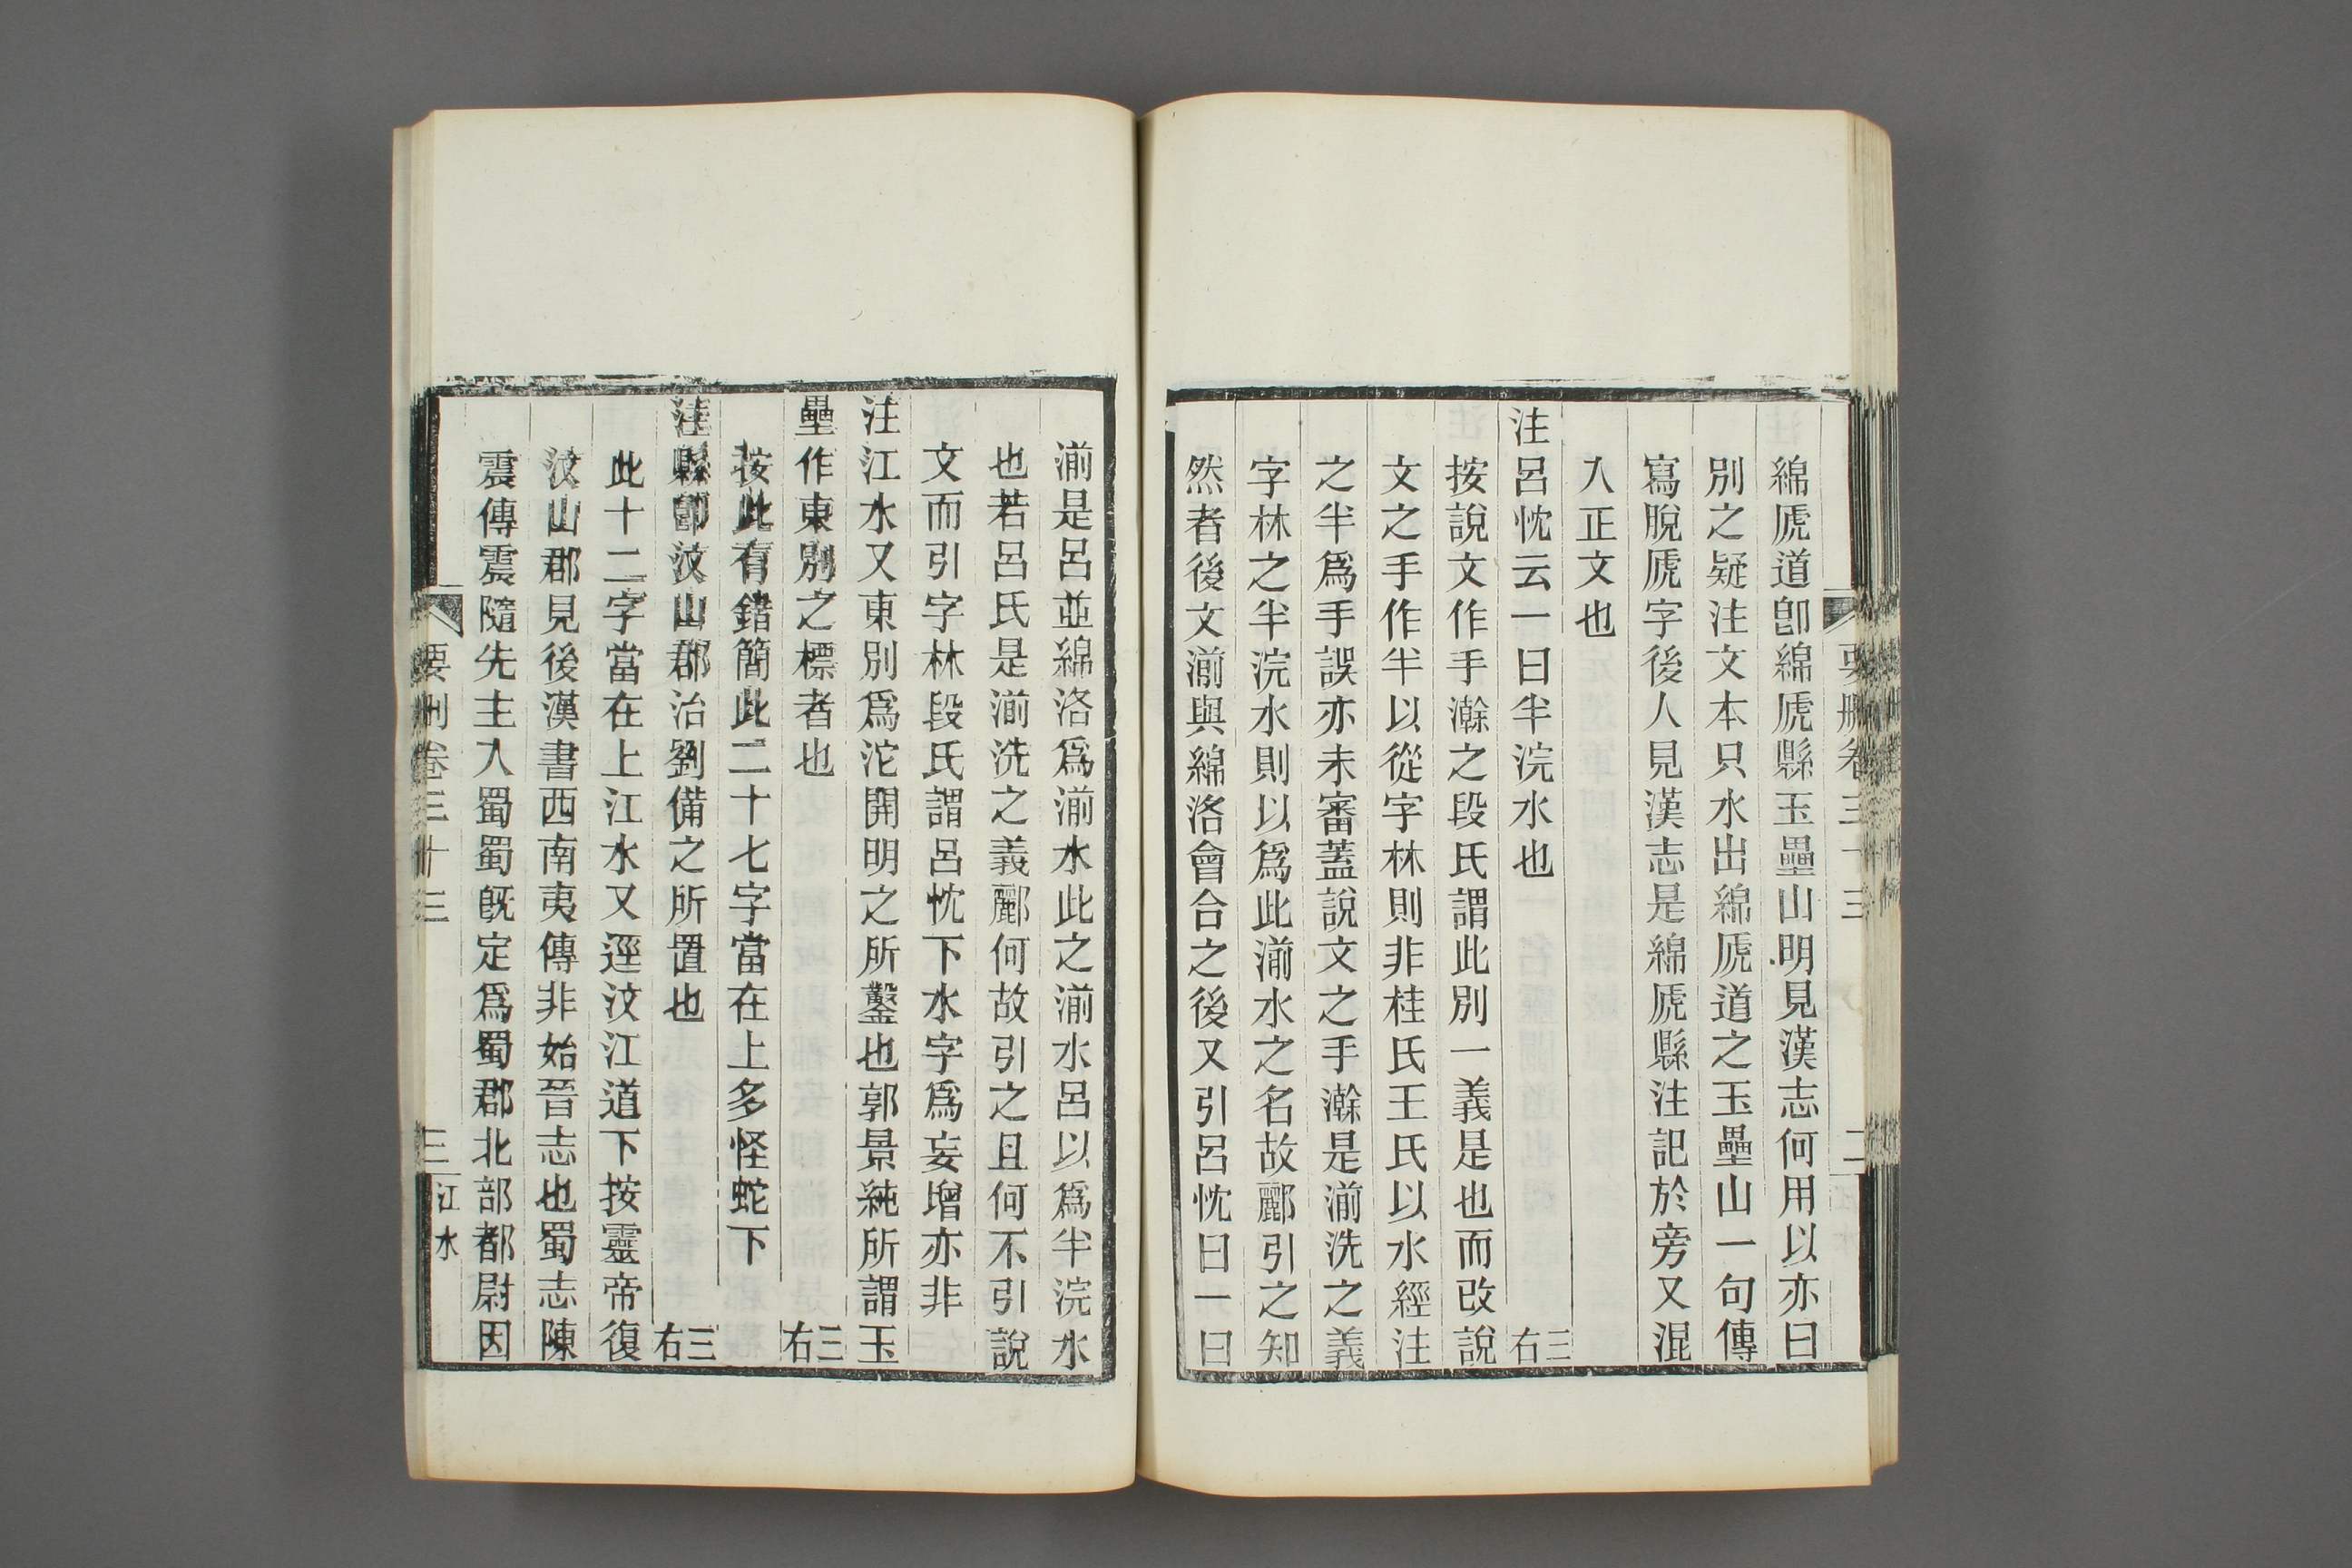 綿虒道卽綿虒縣玉壘山明見漢志何用以亦曰
別之疑注文本只水出綿虒道之玉壘山一句傳
寫脫虒字後人見漢志是綿虒縣注記於旁又混
入正文也
注呂忱云一曰半浣水也 三右
按說文作手澣之段氏謂此別一義是也而改說
文之手作半以從字林則非桂氏王氏以水經注
之半爲手誤亦未審蓋說文之手澣是湔洗之義
字林之半浣水則以爲此湔水之名故酈引之知
然者後文湔與綿洛會合之後又引呂忱曰一曰
湔是呂並綿洛爲湔水此之湔水呂以爲半浣水
也若呂氏是湔洗之義酈何故引之且何不引說
文而引字林段氏謂呂忱下水字爲妄增亦非
注江水又東別爲沱開明之所鑿也郭景純所謂玉
壘作東別之標者也 三右
按此有錯簡此二十七字當在上多怪蛇下
注縣卽汶山郡治劉備之所置也 三右
此十二字當在上江水又逕汶江道下按靈帝復
汶山郡見後漢書西南夷傳非始晉志也蜀志陳
震傳震隨先主入蜀蜀旣定爲蜀郡北部都尉因
要刪卷三十三 三 江水